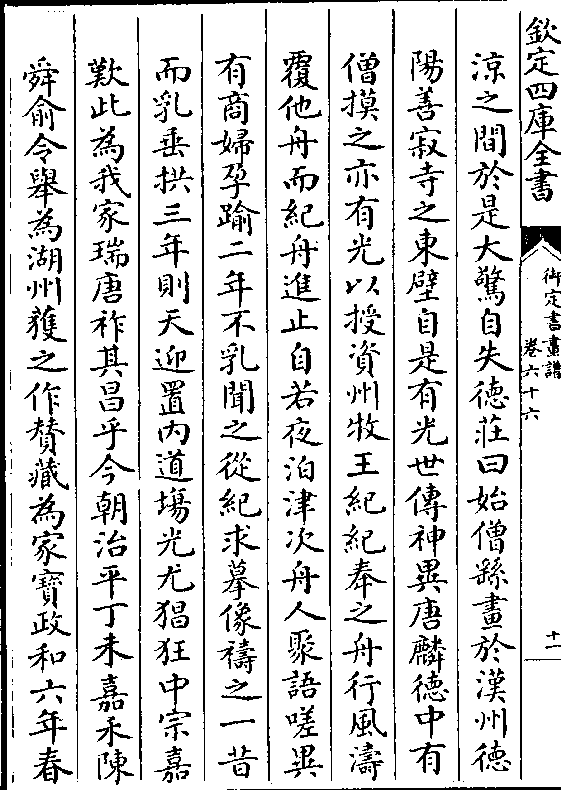 欽定四庫全書
御定書畫譜
卷六十六
十一
涼之間於是大驚自失德莊曰始僧繇畫於漢州德
陽善寂寺之東壁自是有光世傳神異唐麟德中有
僧摸之亦有光以授資州牧王紀紀奉之舟行風濤
覆他舟而紀舟進止自若夜泊津次舟人聚語嗟異
有商婦孕踰二年不乳聞之從紀求摹像禱之一昔
而乳垂拱三年則天迎置内道塲光尤猖狂中宗嘉
歎此為我家瑞唐祚其昌乎今朝治平丁未嘉禾陳
舜俞令舉為湖州獲之作賛藏為家寳政和六年春